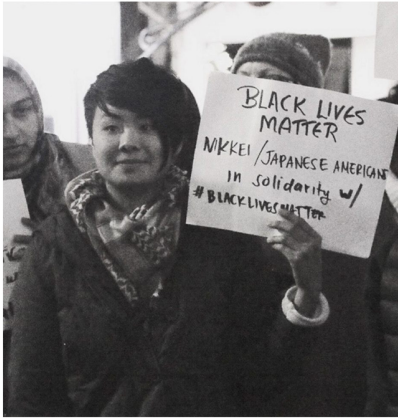 BLACK LIVES
MATTER
NIKKEI/JAPANESE AMERICANS
in solidarity w/
#BLACKLIVESMATTER